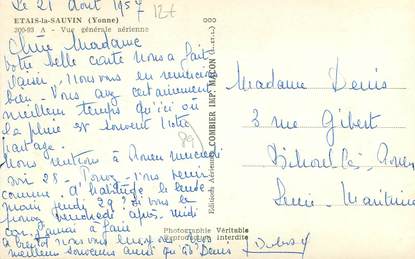 Le 21 Août 1957
ETAIS-la-SAUVIN (Yonne)
300-93 A - Vue générale aérienne
Chère Madame
Votre belle carte nous a fait
plaisir, nous vous en remercions
bien. Vous avez certainement
meilleur temps qu'ici où
la pluie est souvent notre
partage.
Nous rentrons à Rouen mercredi
soir 28. Pouvez-vous venir
comme d'habitude le lende
main jeudi 29? si vous le
pouvez vendredi après-midi
à bientôt nous vous
meilleurs souvenirs ainsi qu'à Denis
Madame Denis
3 rue Gibert
Bihorel lès Rouen
Seine Maritime
Editions Aériennes COMBIER IMP. MACON (S.-et-L.)
Photographie Véritable
Reproduction interdite